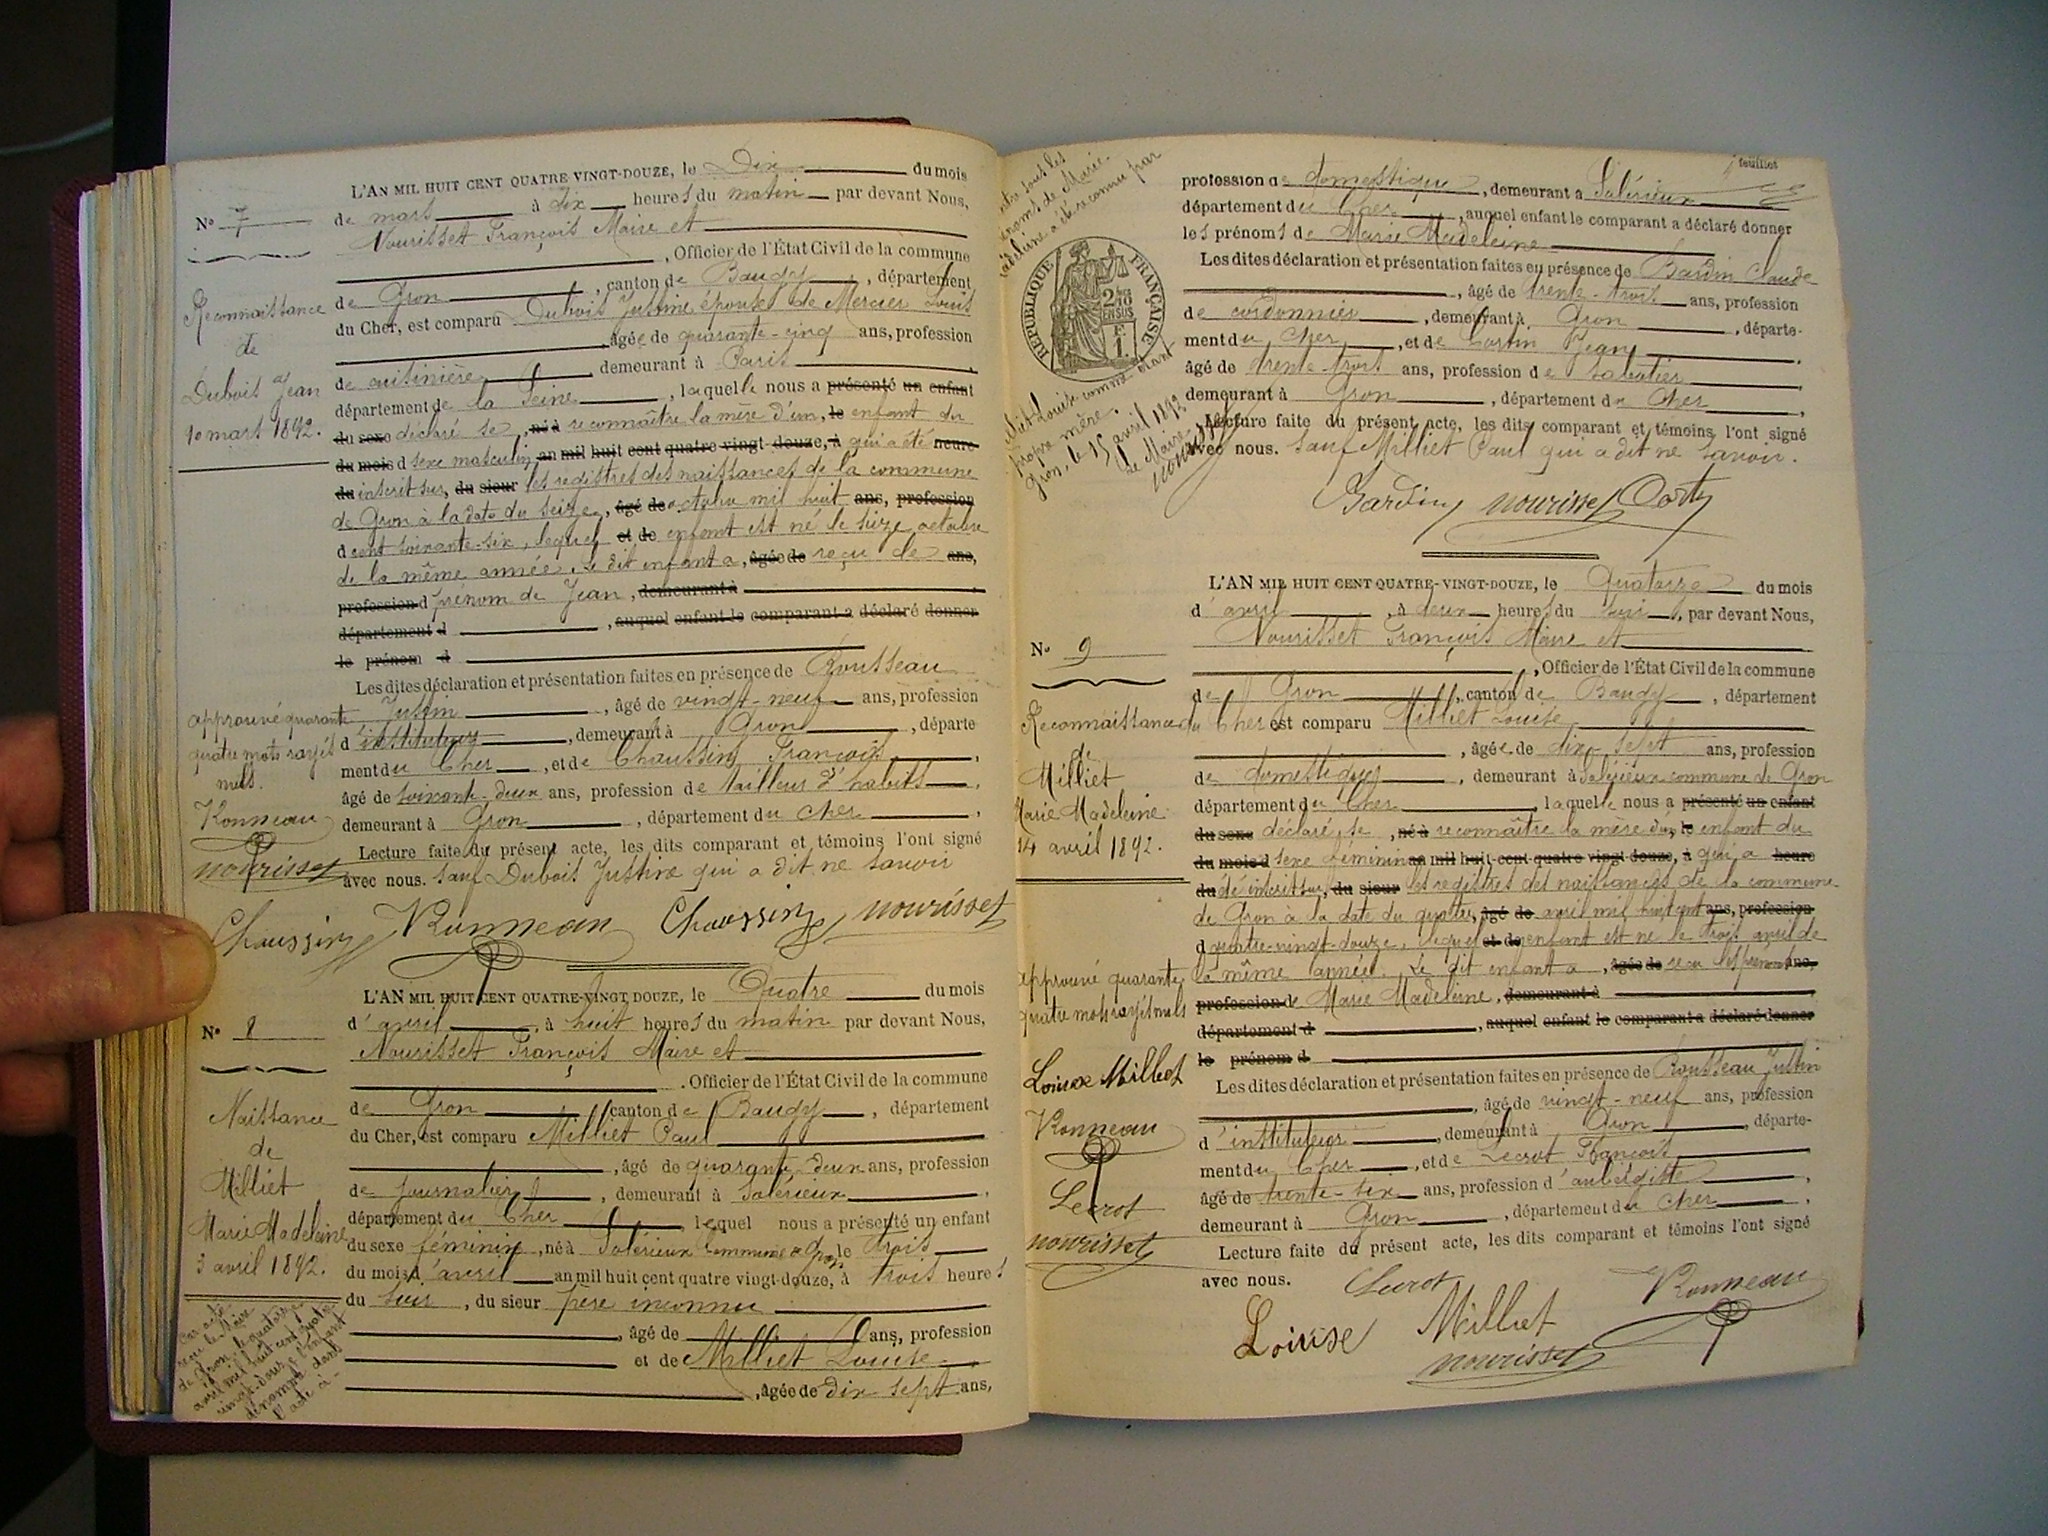 L'AN MIL HUIT CENT QUATRE VINGT-DOUZE, le Dix du mois
No 7
de mars à dix heures du matin par devant Nous,
Nourisset François Maire et
, Officier de l'État Civil de la commune
de Gron , canton de Baugy , département
du Cher, est comparu Dubois Justine épouse de Mercier Louis
Reconnaissance
de
Dubois Jean
10 mars 1892.
, âgée de quarante-cinq ans, profession
de cuisinière demeurant à Paris
département de la Seine , laquelle nous a présenté un enfant
du sexe déclaré se , né à reconnaître la mère d'un, le enfant du
du mois d sexe masculin an mil huit cent quatre vingt-douze, à qui a été heure
du inscrit sur, du sieur les registres des naissances de la commune
de Gron à la date du seize , âgé de octobre mil huit ans, profession
d cent soixante-six, lequel et de enfant est né le seize octobre
de la même année. Le dit enfant a , âgée de reçu le ans,
profession d prénom de Jean , demeurant à
département d , auquel enfant le comparant a déclaré donner
le prénom d
Les dites déclaration et présentation faites en présence de Rousseau
Justin , âgé de vingt-neuf ans, profession
d'instituteur , demeurant à Gron , départe
ment du Cher , et de Chaussin François ,
âgé de soixante-deux ans, profession de tailleur d'habits ,
demeurant à Gron , département du Cher ,
Lecture faite du présent acte, les dits comparant et témoins l'ont signé
avec nous. sauf Dubois Justine qui a dit ne savoir
approuvé quarante
quatre mots rayés
nuls.
nourisset
Chaussin Chaussin nourisset
L'AN MIL HUIT CENT QUATRE-VINGT DOUZE, le Quatre du mois
No 8
d'avril à huit heures du matin par devant Nous,
Nourisset François Maire et
. Officier de l'État Civil de la commune
de Gron canton de Baugy , département
du Cher, est comparu Milliet Paul
Naissance
de
Milliet
Marie Madeleine
3 avril 1892.
, âgé de quarante-deux ans, profession
de journalier , demeurant à Salérieux ,
département du Cher , lequel nous a présenté un enfant
du sexe féminin , né à Salérieux Commune de Gron le trois
du mois d'avril an mil huit cent quatre vingt-douze, à trois heures
du soir , du sieur père inconnu
, âgé de ans, profession
et de Milliet Louise
, âgée de dix sept ans,
Par acte
reçu le Maire
de Gron, le quatorze
avril mil huit cent quatre
vingt-douze, l'enfant
dénommé dans
l'acte ci-
feuillet
profession de domestique , demeurant à Salérieux
département du Cher , auquel enfant le comparant a déclaré donner
les prénoms de Marie Madeleine
Les dites déclaration et présentation faites en présence de Bardin Claude
, âgé de trente-trois ans, profession
de cordonnier , demeurant à Gron , départe-
ment du Cher , et de Jean ,
âgé de trente-trois ans, profession de sabotier ,
demeurant à Gron , département du Cher ,
Lecture faite du présent acte, les dits comparant et témoins l'ont signé
avec nous. sauf Milliet Paul qui a dit ne savoir.
contre sous les
prénoms de Marie
Madeleine a été reconnu par
RÉPUBLIQUE FRANÇAISE
2/10
EN SUS
F.
1.
Milliet Louise comme étant
propre mère.
Gron, le 15 avril 1892
Le Maire
nourisset
Bardin nourisset
L'AN MIL HUIT CENT QUATRE-VINGT-DOUZE, le Quatorze du mois
d'avril , à deux heures du soir , par devant Nous,
Nourisset François Maire et
No 9
, Officier de l'État Civil de la commune
de Gron , canton de Baugy , département
du Cher est comparu Milliet Louise
Reconnaissance
de
Milliet
Marie Madeleine
14 avril 1892.
, âgée de dix-sept ans, profession
de domestique , demeurant à Salérieux commune de Gron
département du Cher , laquelle nous a présenté un enfant
du sexe déclaré se , né à reconnaître la mère d'un le enfant du
du mois d sexe féminin an mil huit cent quatre vingt douze, à qui a heure
du été inscrit sur, du sieur les registres des naissances de la commune
de Gron à la date du quatre, âgé de avril mil huit cent ans, profession
d quatre-vingt-douze, lequel et de enfant est né le trois avril de
la même année. Le dit enfant a , âgée de reçu les prénoms ans,
profession de Marie Madeleine , demeurant à
département d , auquel enfant le comparant a déclaré donner
le prénom d
Les dites déclaration et présentation faites en présence de Rousseau Justin
, âgé de vingt-neuf ans, profession
d'instituteur , demeurant à Gron , départe-
ment du Cher , et de Lecrot François ,
âgé de trente-six ans, profession d'aubergiste ,
demeurant à Gron , département du Cher ,
Lecture faite du présent acte, les dits comparant et témoins l'ont signé
avec nous.
approuvé quarante
quatre mots rayés nuls
Louise Milliet
Lecrot
nourisset
Lecrot
Louise Milliet
nourisset